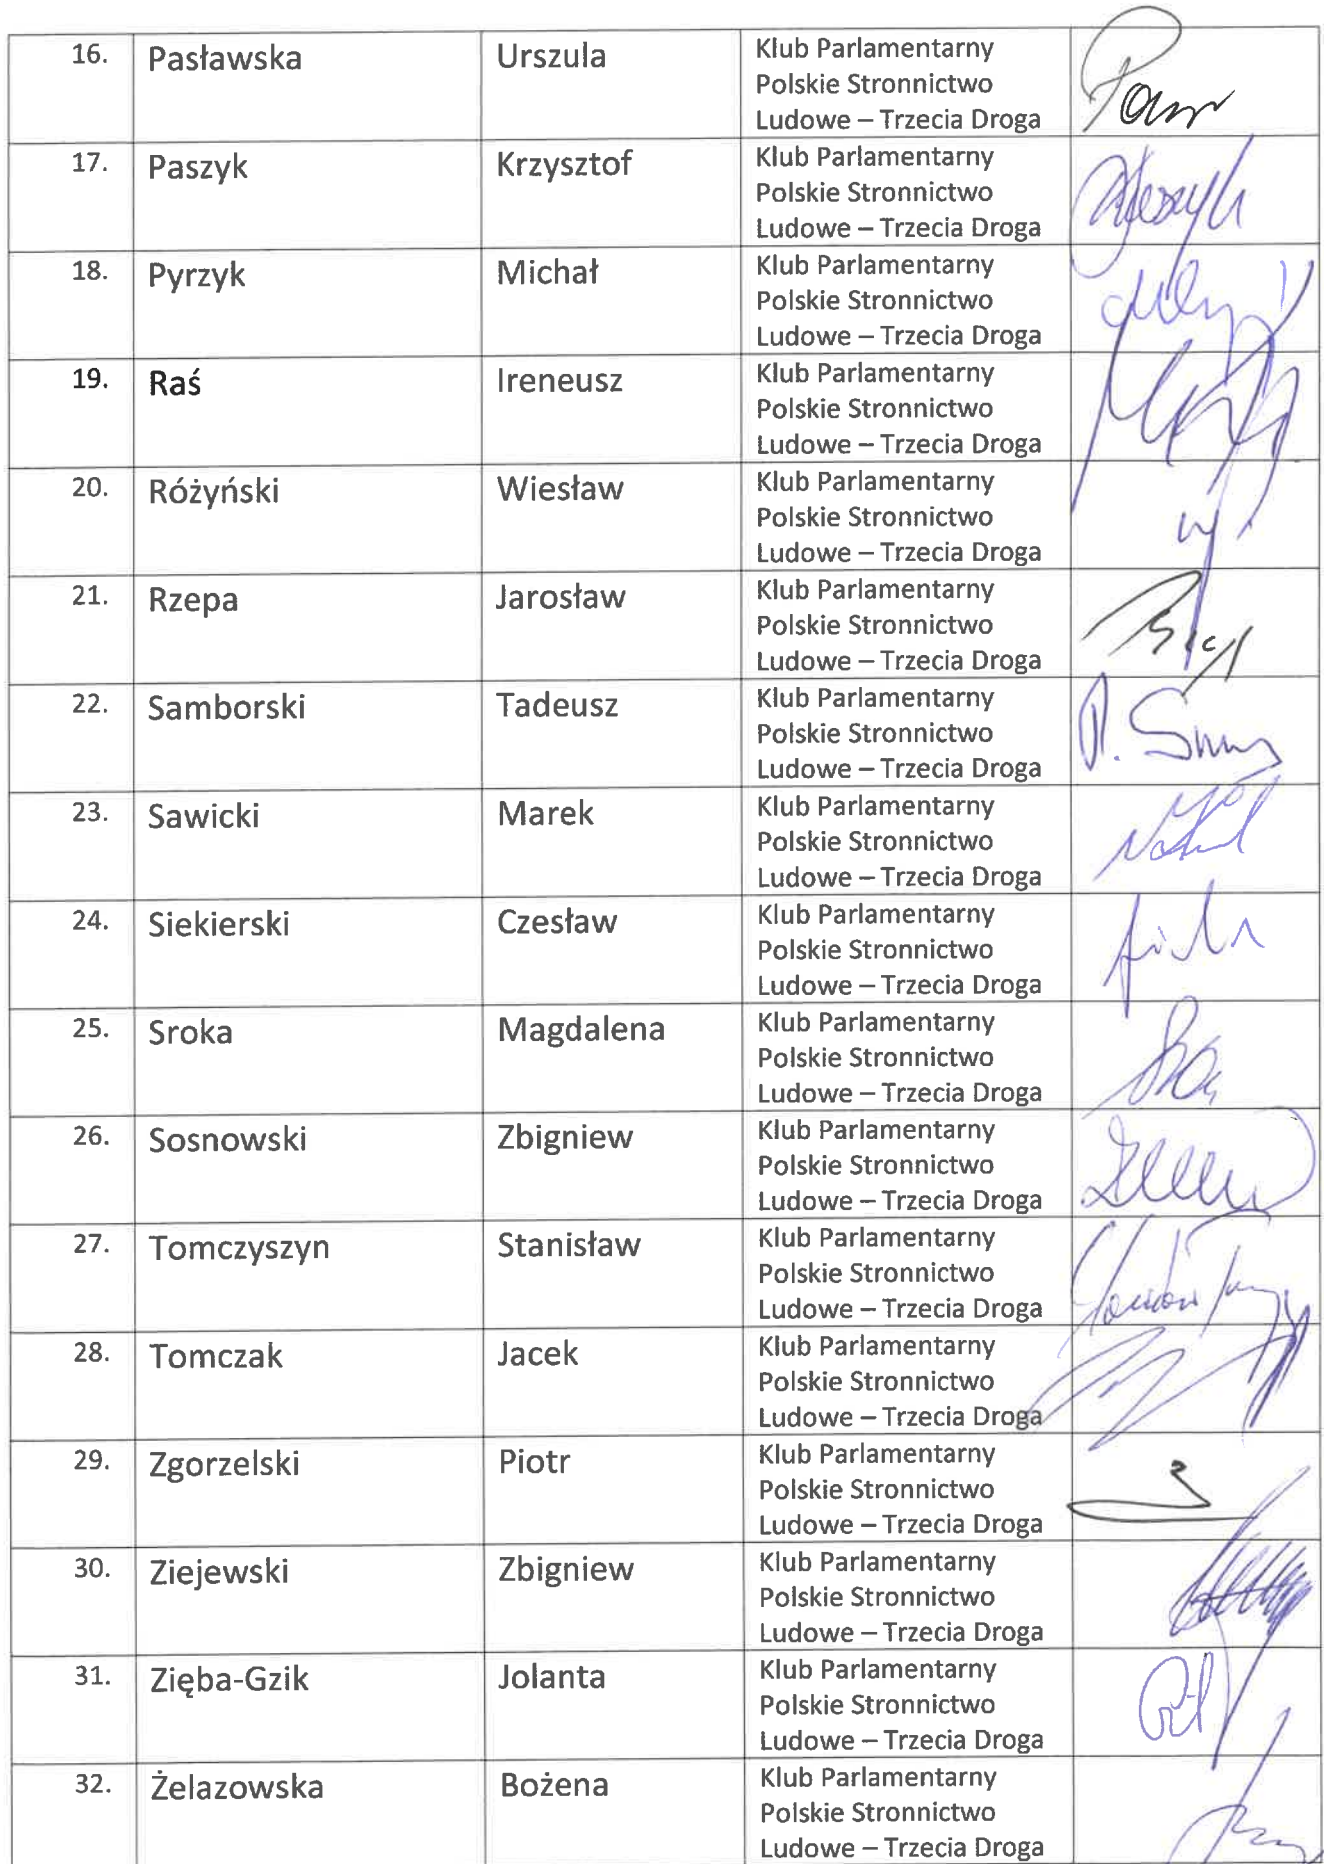 16. Pasławska Urszula Klub Parlamentarny
Polskie Stronnictwo
Ludowe – Trzecia Droga
17. Paszyk Krzysztof Klub Parlamentarny
Polskie Stronnictwo
Ludowe – Trzecia Droga
18. Pyrzyk Michał Klub Parlamentarny
Polskie Stronnictwo
Ludowe – Trzecia Droga
19. Raś Ireneusz Klub Parlamentarny
Polskie Stronnictwo
Ludowe – Trzecia Droga
20. Różyński Wiesław Klub Parlamentarny
Polskie Stronnictwo
Ludowe – Trzecia Droga
21. Rzepa Jarosław Klub Parlamentarny
Polskie Stronnictwo
Ludowe – Trzecia Droga
22. Samborski Tadeusz Klub Parlamentarny
Polskie Stronnictwo
Ludowe – Trzecia Droga
23. Sawicki Marek Klub Parlamentarny
Polskie Stronnictwo
Ludowe – Trzecia Droga
24. Siekierski Czesław Klub Parlamentarny
Polskie Stronnictwo
Ludowe – Trzecia Droga
25. Sroka Magdalena Klub Parlamentarny
Polskie Stronnictwo
Ludowe – Trzecia Droga
26. Sosnowski Zbigniew Klub Parlamentarny
Polskie Stronnictwo
Ludowe – Trzecia Droga
27. Tomczyszyn Stanisław Klub Parlamentarny
Polskie Stronnictwo
Ludowe – Trzecia Droga
28. Tomczak Jacek Klub Parlamentarny
Polskie Stronnictwo
Ludowe – Trzecia Droga
29. Zgorzelski Piotr Klub Parlamentarny
Polskie Stronnictwo
Ludowe – Trzecia Droga
30. Ziejewski Zbigniew Klub Parlamentarny
Polskie Stronnictwo
Ludowe – Trzecia Droga
31. Zięba-Gzik Jolanta Klub Parlamentarny
Polskie Stronnictwo
Ludowe – Trzecia Droga
32. Żelazowska Bożena Klub Parlamentarny
Polskie Stronnictwo
Ludowe – Trzecia Droga